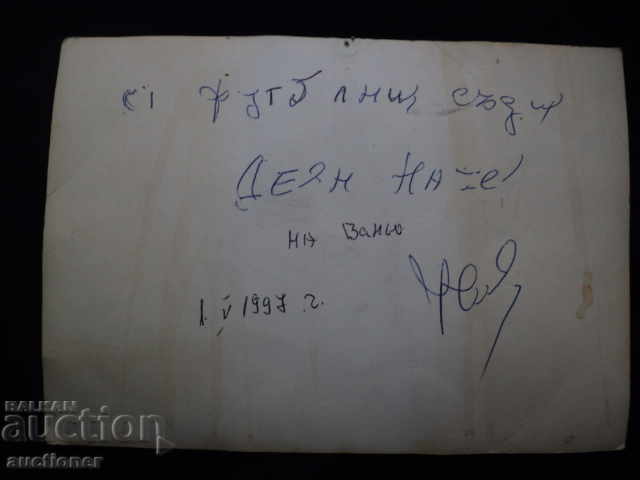 футболниц съди
ДЕЯН
на Ваньо
1. V 1997 г.
BALKAN
auction
auctioner